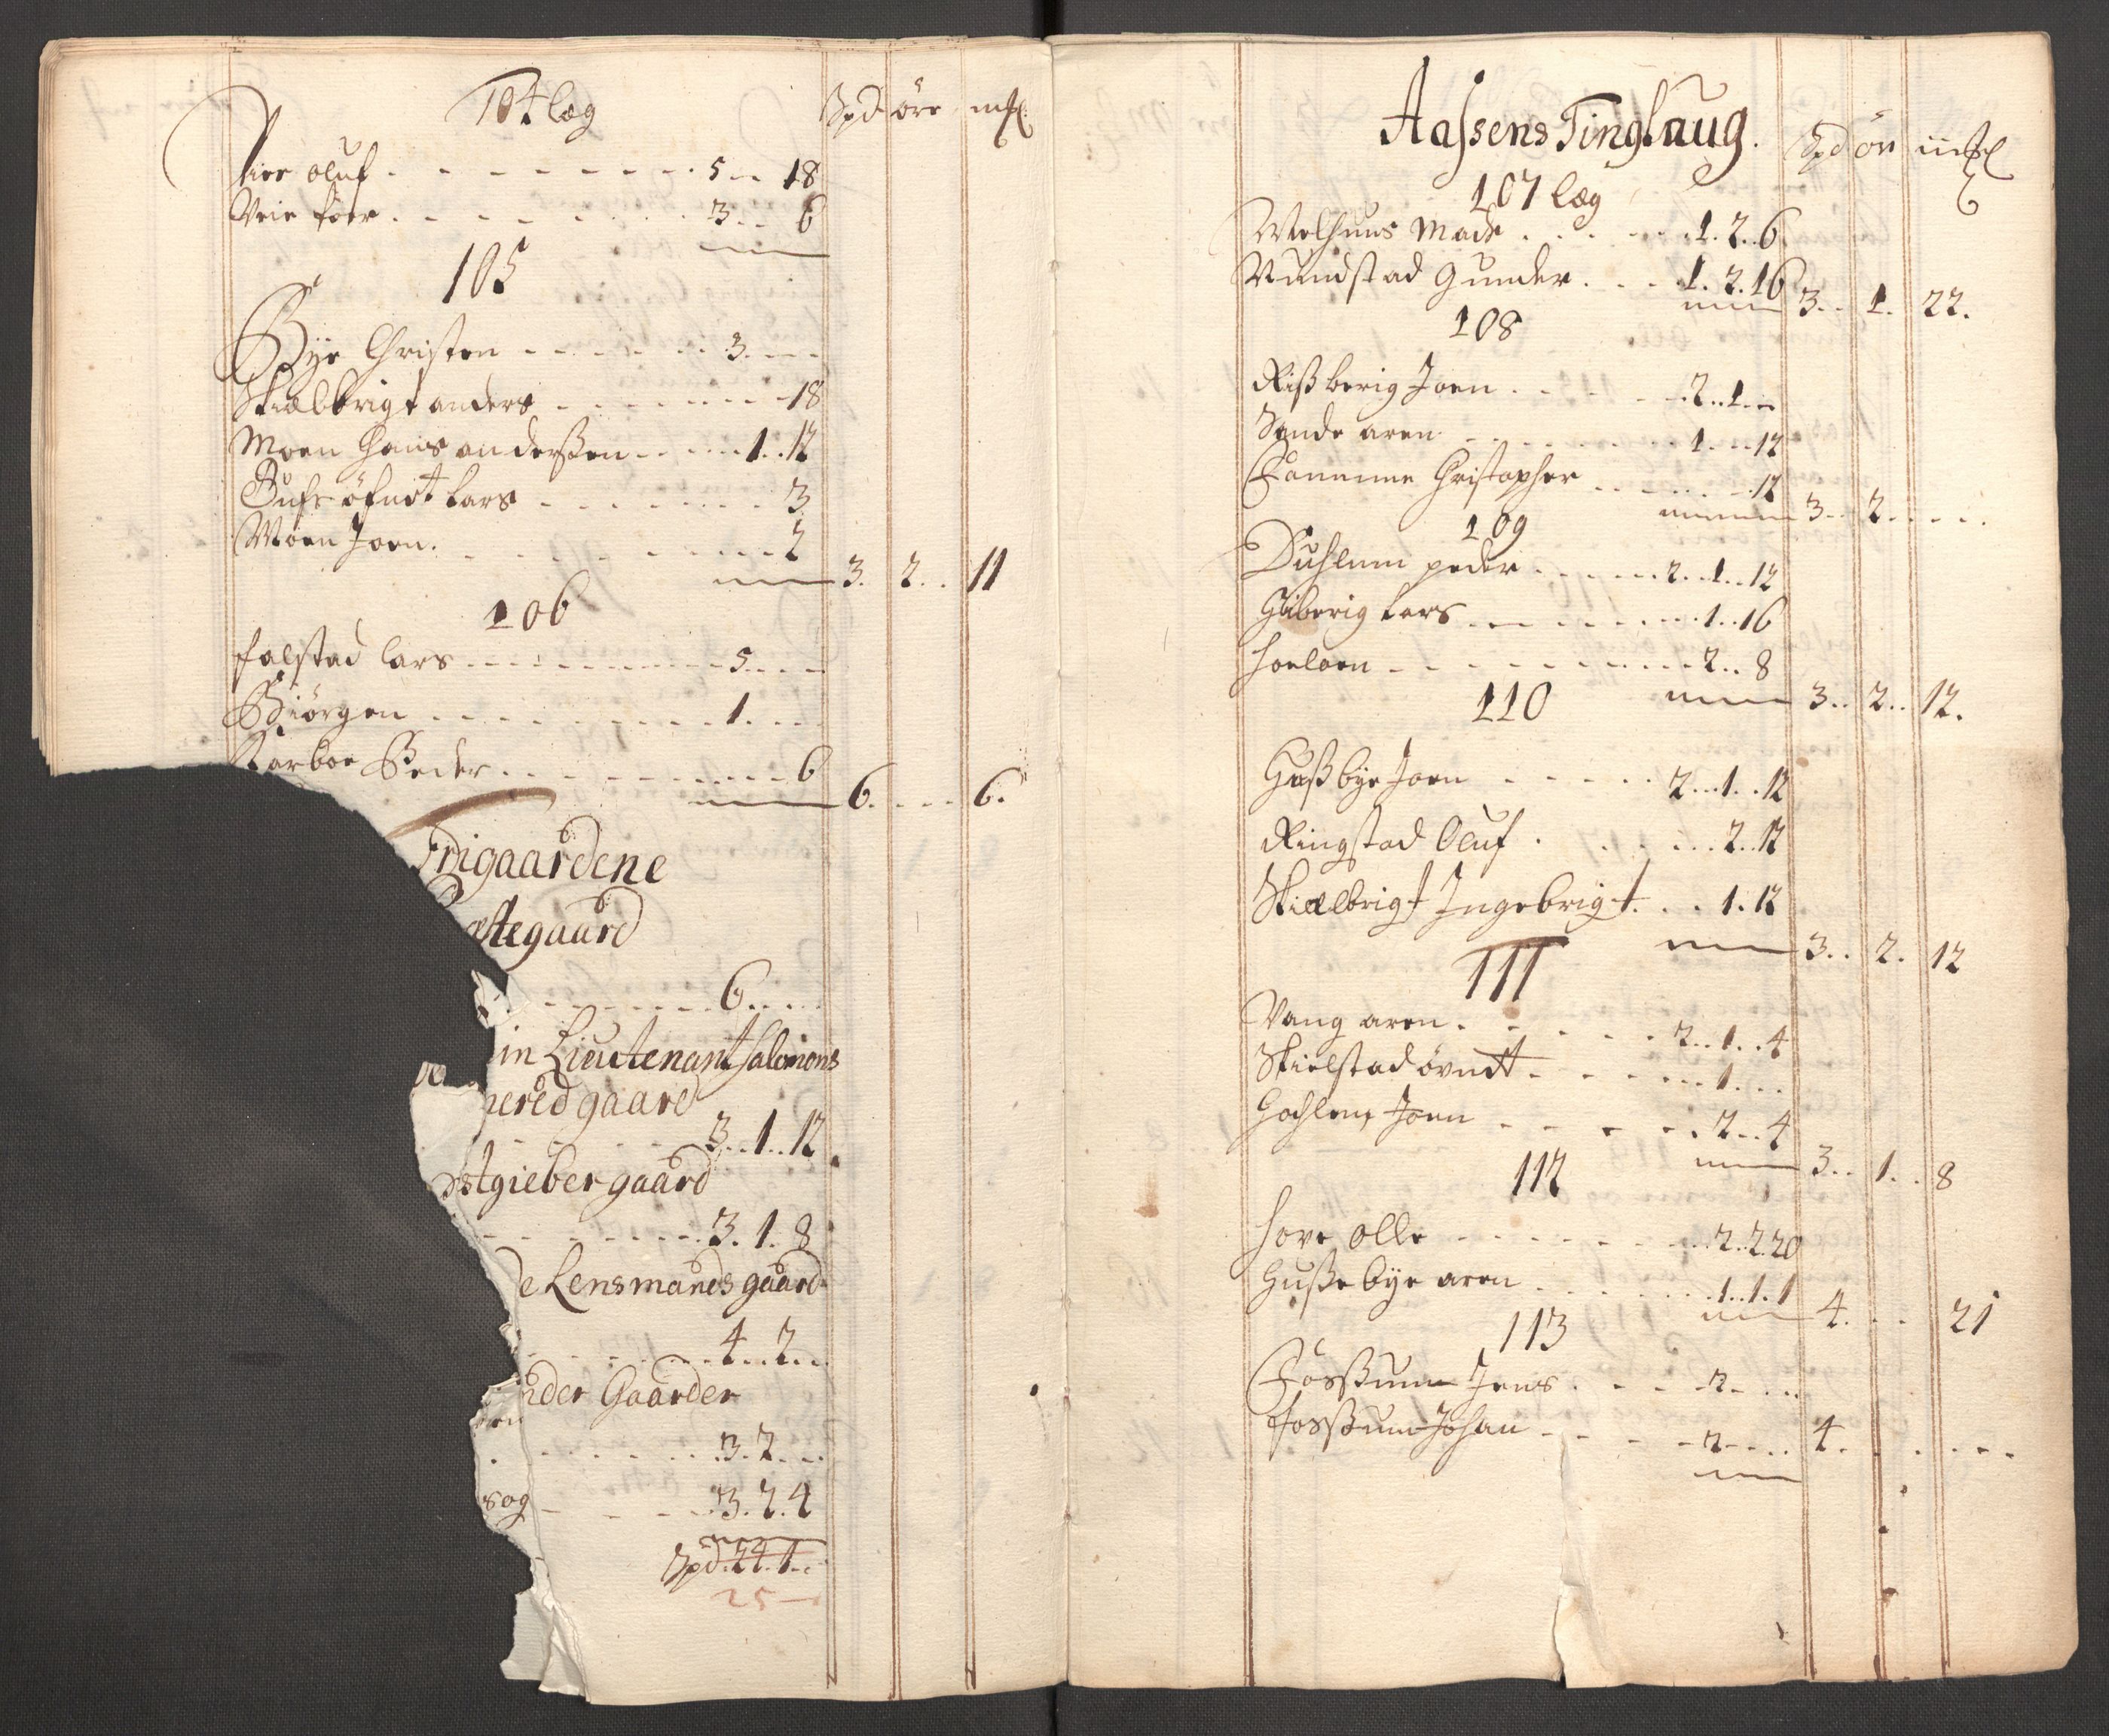 104 læg Spd öre mkl
oluf 5 18
Veie 3 6
105
Bye Christen 3
Skielbrigt anders 18
Moen Hans anderßen 1 12
öfndt Lars 3
Moen Joen 2
3 2 11
106
falstad lars 5
Biörgen 1
Peder 6
6 6
rigaardene
stegaard
6
in Lieutenant Salomons
nered gaard
3 1 12
stgieber gaard
3 1 8
e Lensmands gaard
4 2
nder Gaarder
3 2
sog 3 2 4
Spd 24 1
25
Aassens Tinglaug. Spd ör mkl
107 læg
Welhuus Mads 1 2 6
Wundstad Gunder 1 2 16
3 1 22
108
Rißberig Joen 2 1
Sande aren 1 12
Christopher 12
3 2
109
Duhlum peder 2 1 12
lars 1 16
hoeloen 2 8
3 2 12
110
Hußbye Joen 2 1 12
Ringstad Oluf 2 12
Skielbrigt Ingebrigt 1 12
3 2 12
111
Vang aren 2 1 4
Skielstad övndt 1
Joen 2 4
3 1 8
112
hove olle 2 2 20
Hußebye aren 1 1 1
4 21
113
Fosßum Jens 2
fosßum Johan 2
4